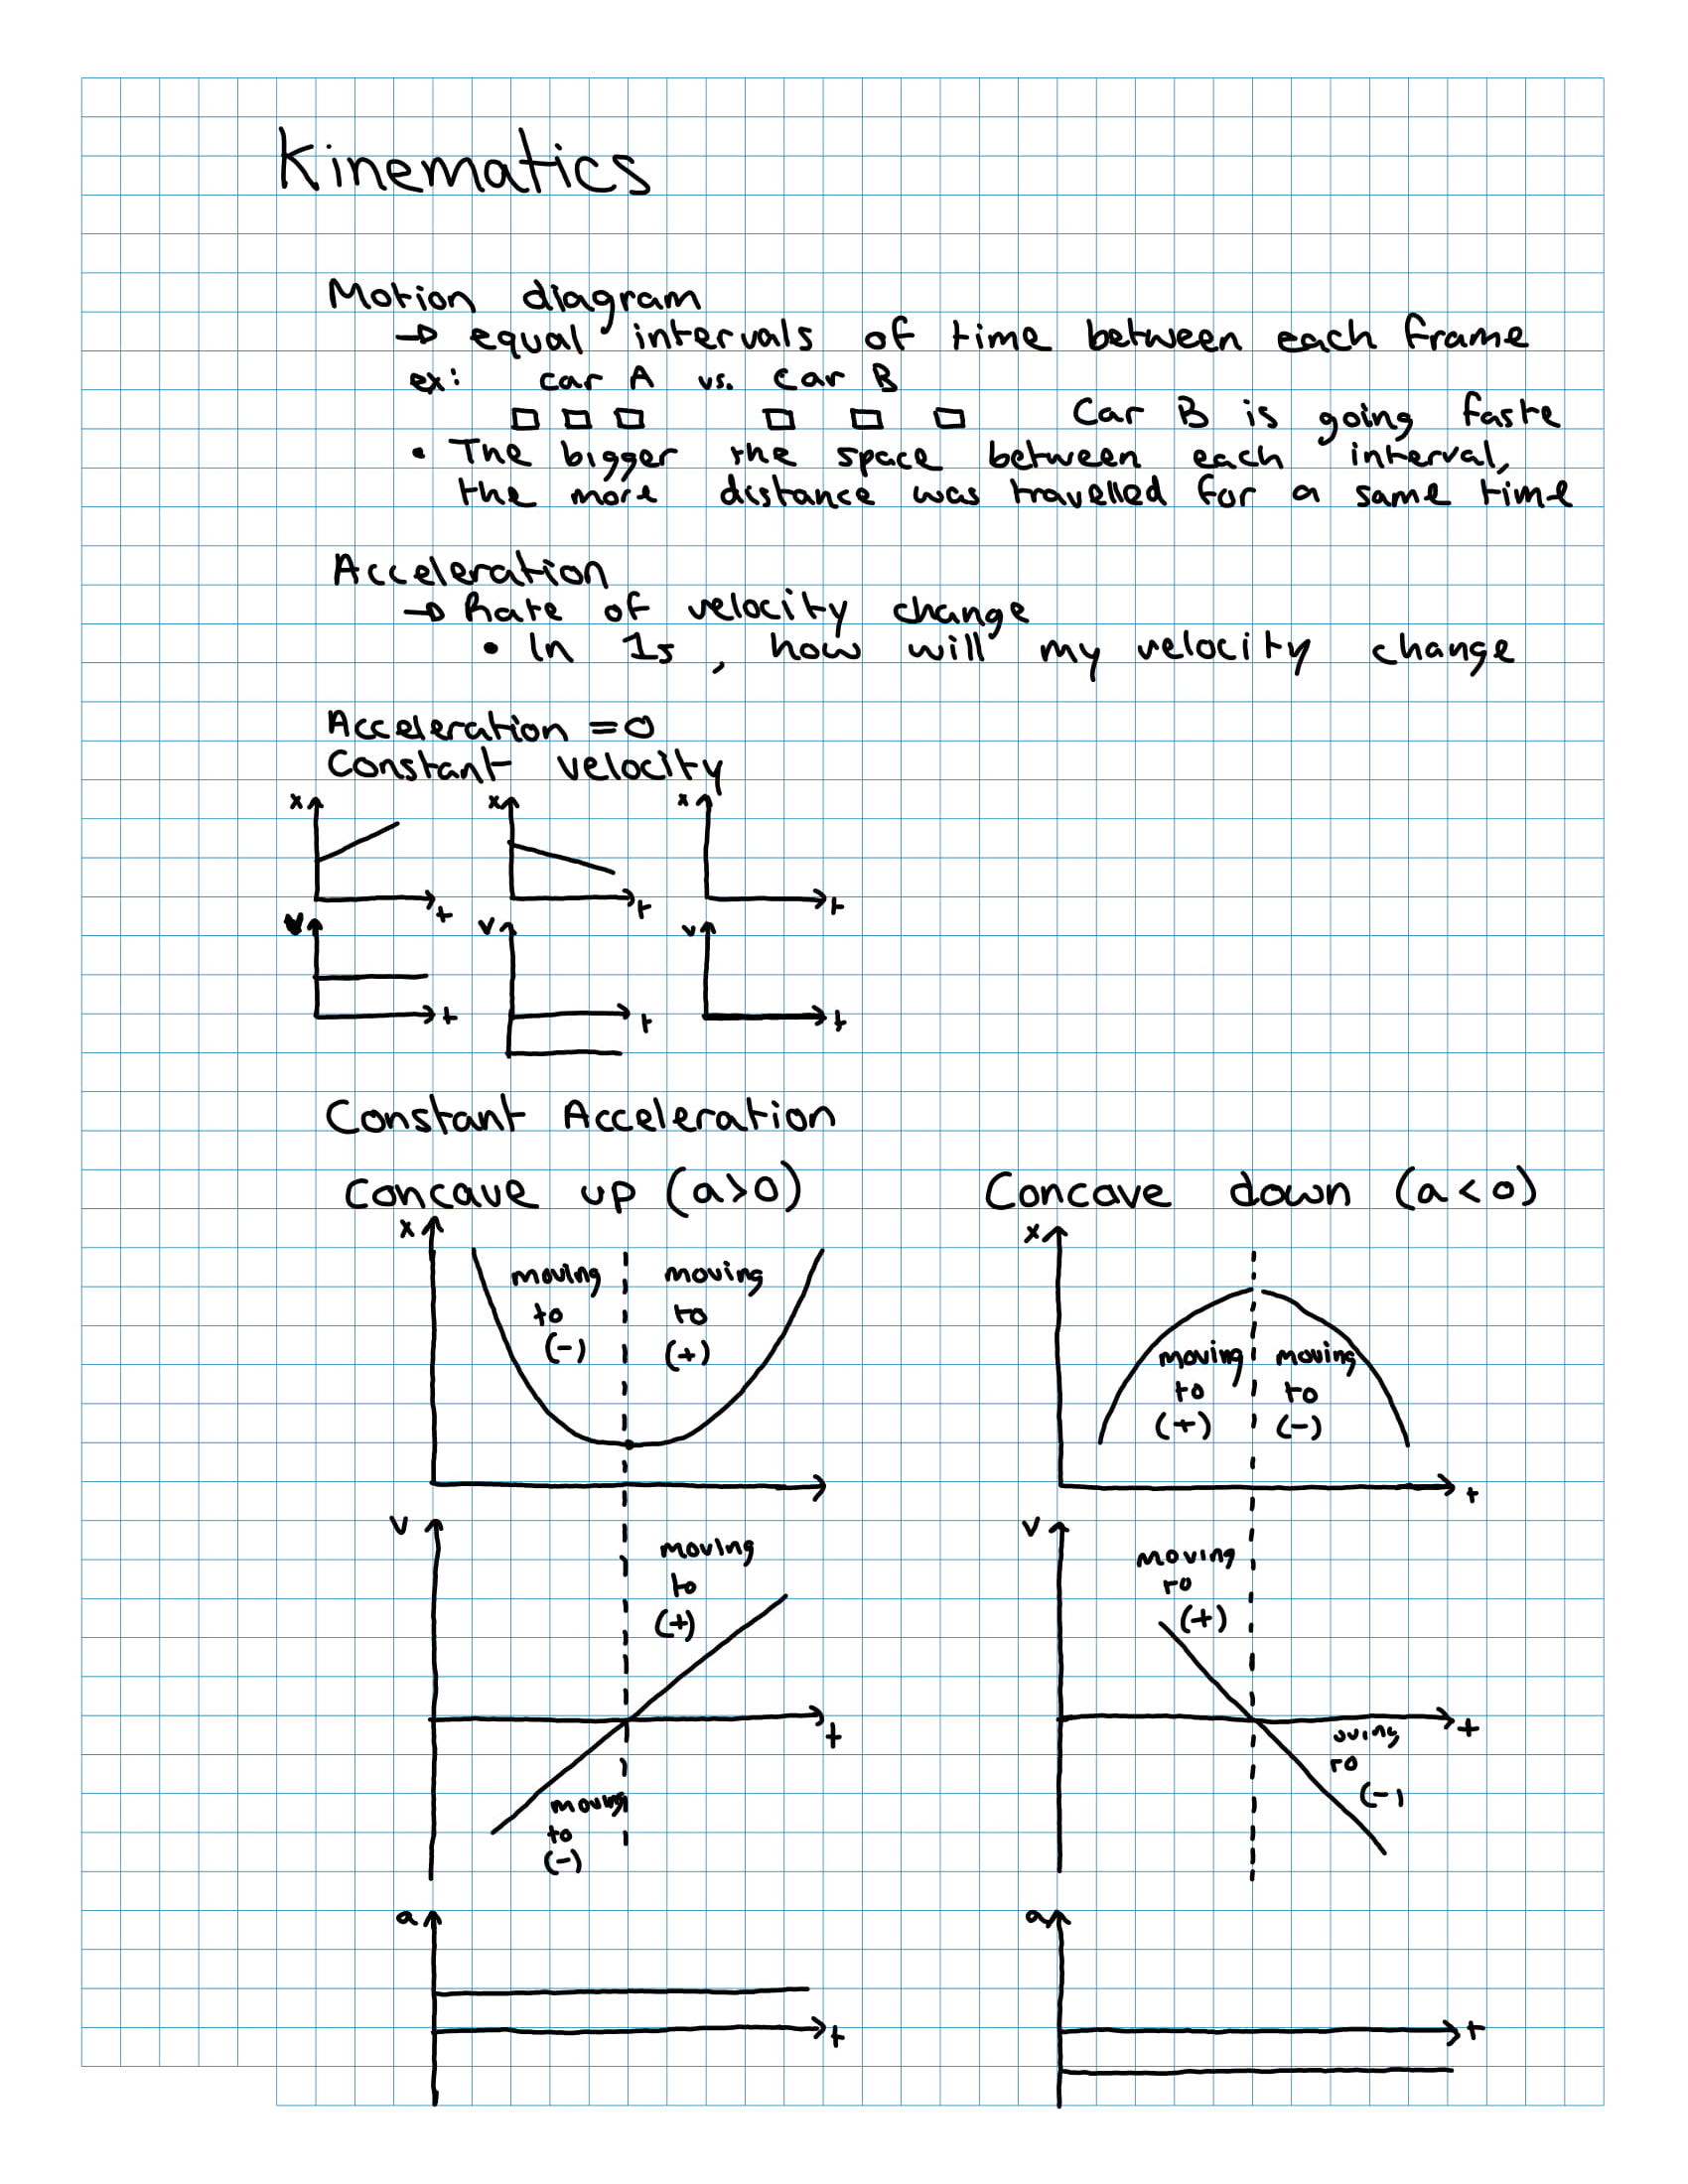 Kinematics
Motion diagram
→ equal intervals of time between each frame
ex: car A vs. car B
Car B is going faste
• The bigger the space between each interval,
the more distance was travelled for a same time
Acceleration
→ Rate of velocity change
• In 1s, how will my velocity change
Acceleration = 0
Constant velocity
x x x
t t t
v v v
t t t
Constant Acceleration
Concave up (a>0) Concave down (a<0)
x
moving moving
to to
(-) (+)
x
moving moving
to to
(+) (-)
t
v
moving
to
(+)
t
moving
to
(-)
v
moving
to
(+)
t
oving
to
(-)
a
t
a
t